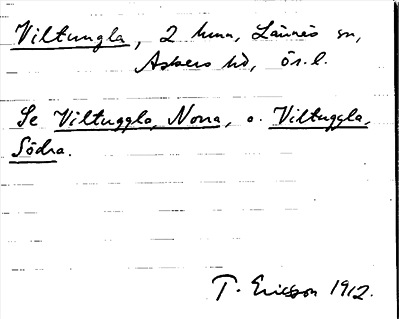 Viltungla, 2 hmn, Lännäs sn,
Askers hd, ör.l.
Se Viltuggla, Norra, o. Viltuggla,
Södra.
T. Ericsson 1912.